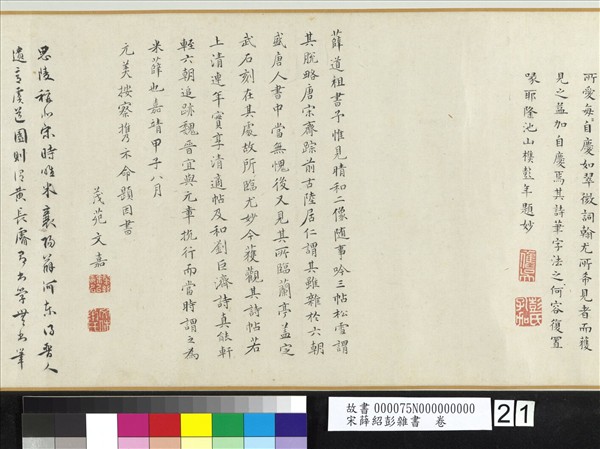 所愛每自慶如翠微詞翰尤所希見者而獲
見之益加自慶焉其詩筆字法之何容復置
喙耶隆池山樵彭年題妙
薛道祖書予惟見晴和二像隨事吟三帖松雪謂
其脫略唐宋齊蹤前古陸居仁謂其雖雜於六朝
盛唐人書中當無愧後又見其所臨蘭亭蓋定
武石刻在其處故所臨尤妙今獲觀其詩帖若
上清連年實享清適帖及和劉巨濟詩真能軒
輊六朝追跡魏晉宜與元章抗行而當時謂之為
米薛也嘉靖甲子八月
元美按察携示命題因書
茂苑文嘉
思陵稱水宋時唯米襄陽薛河東得晉人
遺意虞道園則謂黃長睿
彭氏
故書 000075N000000000
宋薛紹彭雜書 卷
21